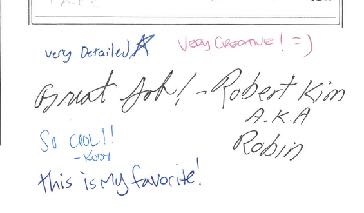 very Detailed
VERY Creative! =)
Great Job! - Robert Kim
A.K.A
Robin
So cool!!
this is my favorite!